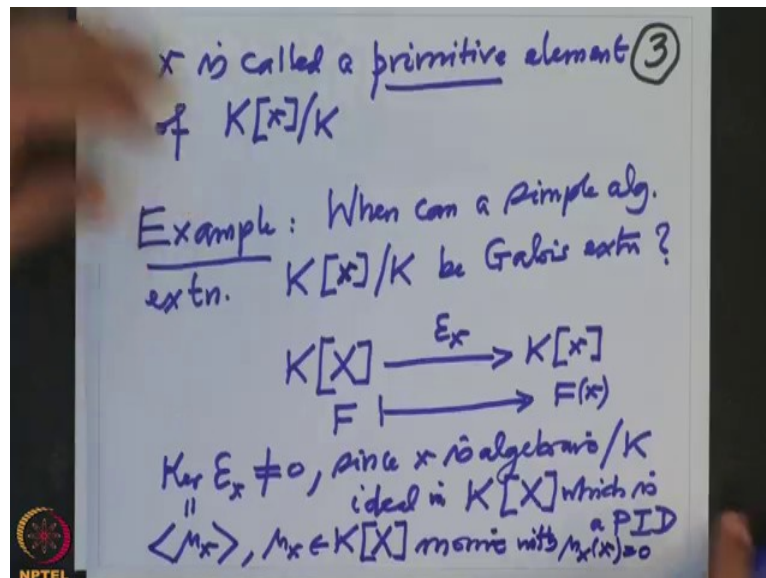 x is called a primitive element ③
of K[x]/K
Example: When can a simple alg.
extn. K[x]/K be Galois extn?
K[X] —ε_x→ K[x]
F ↦ F(x)
Ker ε_x ≠ 0, since x is algebraic/K
|| ideal in K[X] which is
a PID
<μ_x>, μ_x ∈ K[X] monic with μ_x(x)=0
NPTEL